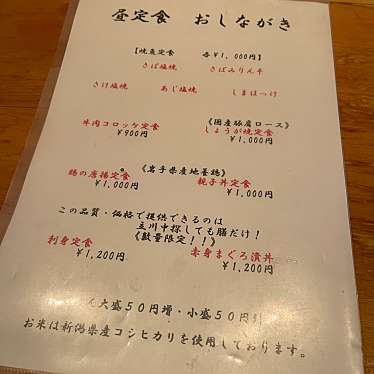 昼定食 おしながき
【焼魚定食 各¥1,000円】
さば塩焼 さばみりん干
さけ塩焼 あじ塩焼 しまほっけ
牛肉コロッケ定食 《国産豚肩ロース》
¥900円 しょうが焼定食
¥1,000円
《岩手県産地養鶏》
鶏の唐揚定食 親子丼定食
¥1,000円 ¥1,000円
この品質・価格で提供できるのは
立川中探しても膳だけ!
《数量限定!!》
刺身定食 赤身まぐろ漬丼
¥1,200円 ¥1,200円
大盛50円増・小盛50円引
お米は新潟県産コシヒカリを使用しております。